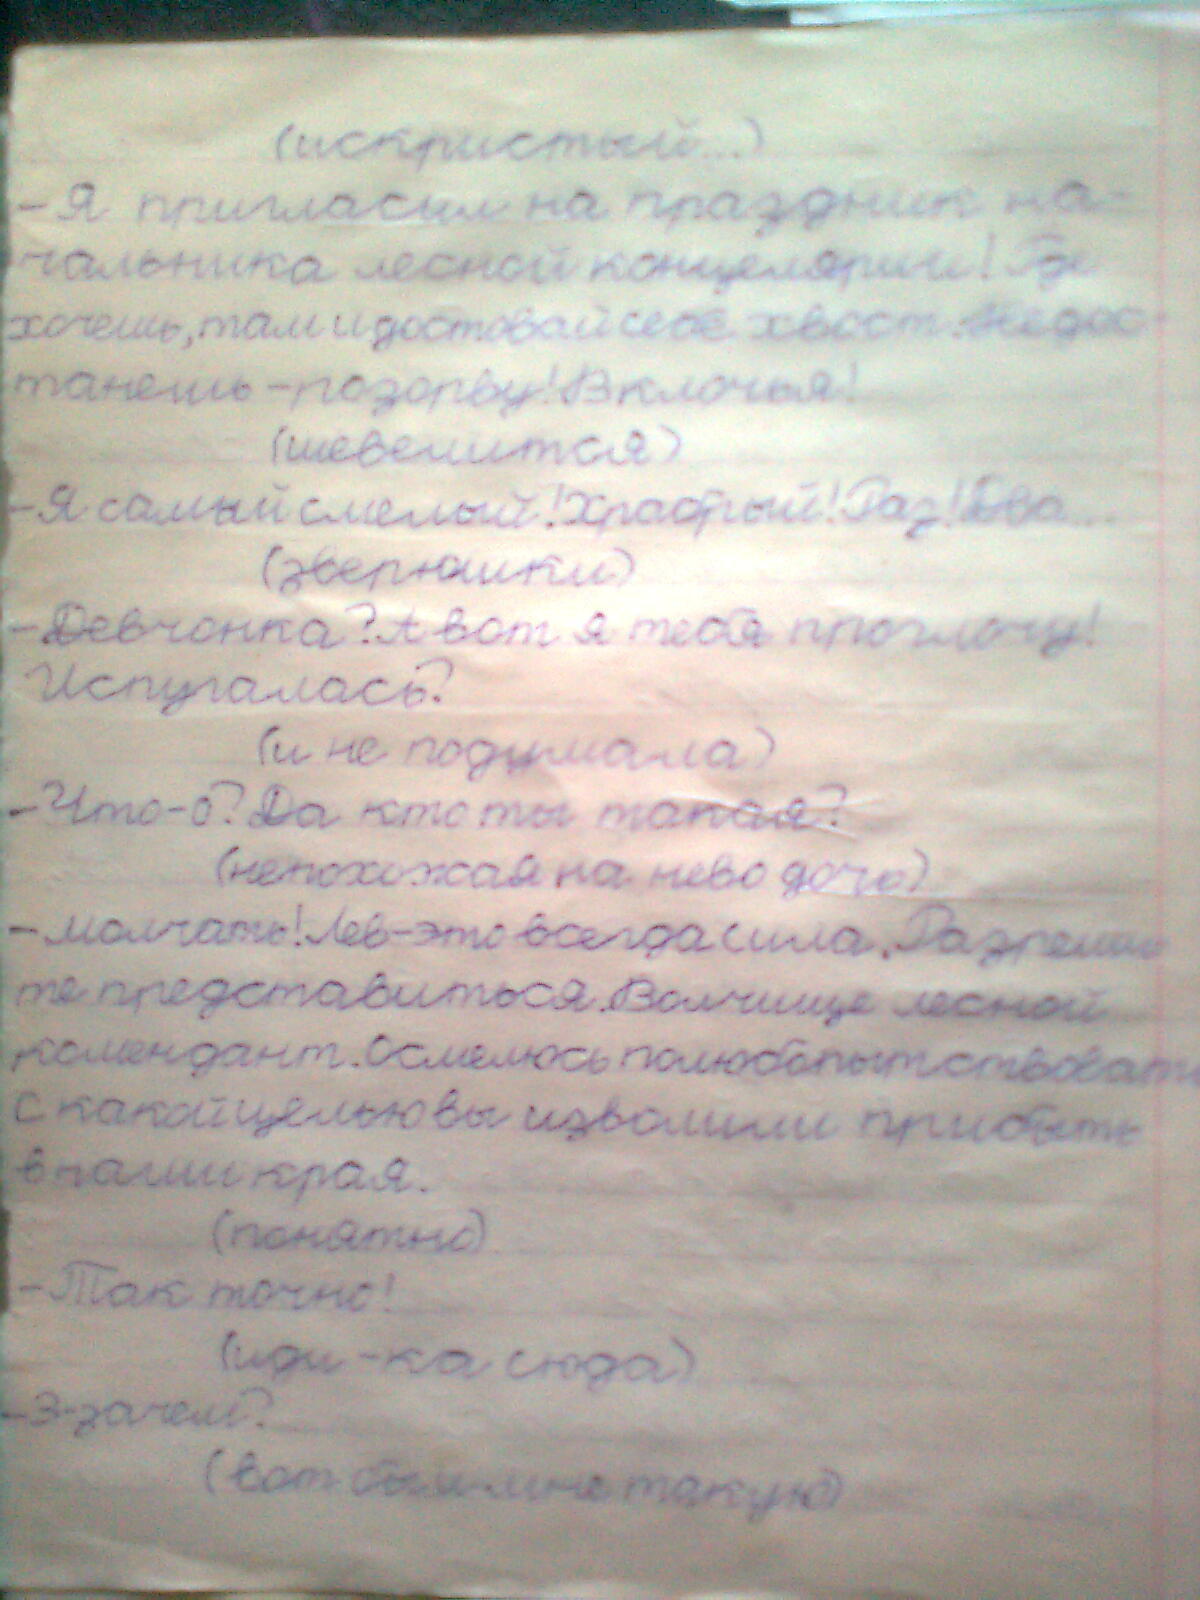 (искристый...)
-Я пригласил на праздник на-
чальника лесной концелярии! Где
хочешь, там и достовай себе хвост. Недос-
танешь - розорву! В клочья!
(шевелится)
-Я самый смелый! Храбрый! Раз! Два...
(зверюшки)
-Девчонка? А вот я тебя проглочу!
Испугалась?
(и не подумала)
-Что-о? Да кто ты такая?
(непохожая на нево дочь)
-Молчать! Лев-это всегда сила. Разреши
те представиться. Волчище лесной
комендант. Осмелюсь полюбопытствовать
С какой целью вы изволили прибыть
в наши края.
(понятно)
-Так точно!
(иди-ка сюда)
-З-зачем?
(вот бы и мне такую)